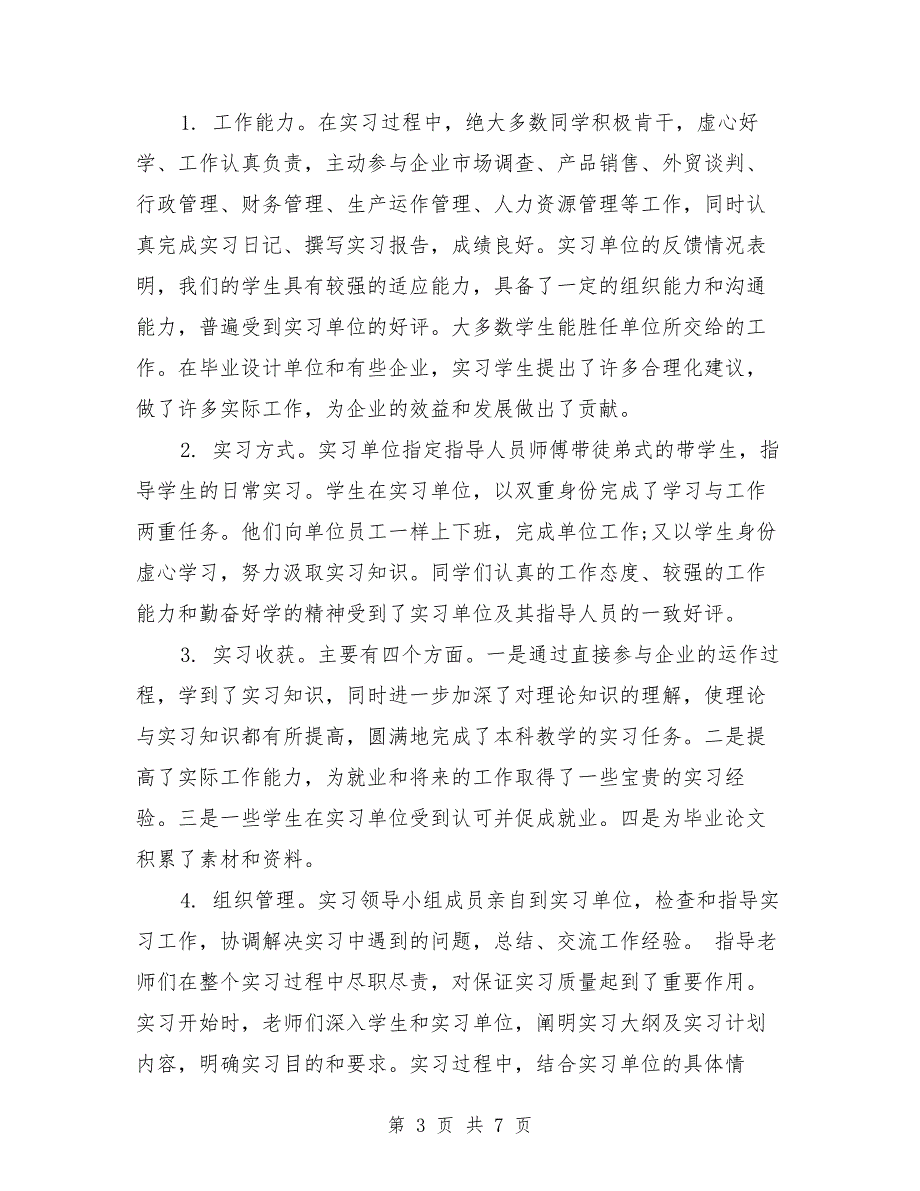 1. 工作能力。在实习过程中，绝大多数同学积极肯干，虚心好
学、工作认真负责，主动参与企业市场调查、产品销售、外贸谈判、
行政管理、财务管理、生产运作管理、人力资源管理等工作，同时认
真完成实习日记、撰写实习报告，成绩良好。实习单位的反馈情况表
明，我们的学生具有较强的适应能力，具备了一定的组织能力和沟通
能力，普遍受到实习单位的好评。大多数学生能胜任单位所交给的工
作。在毕业设计单位和有些企业，实习学生提出了许多合理化建议，
做了许多实际工作，为企业的效益和发展做出了贡献。
2. 实习方式。实习单位指定指导人员师傅带徒弟式的带学生，指
导学生的日常实习。学生在实习单位，以双重身份完成了学习与工作
两重任务。他们向单位员工一样上下班，完成单位工作;又以学生身份
虚心学习，努力汲取实习知识。同学们认真的工作态度、较强的工作
能力和勤奋好学的精神受到了实习单位及其指导人员的一致好评。
3. 实习收获。主要有四个方面。一是通过直接参与企业的运作过
程，学到了实习知识，同时进一步加深了对理论知识的理解，使理论
与实习知识都有所提高，圆满地完成了本科教学的实习任务。二是提
高了实际工作能力，为就业和将来的工作取得了一些宝贵的实习经
验。三是一些学生在实习单位受到认可并促成就业。四是为毕业论文
积累了素材和资料。
4. 组织管理。实习领导小组成员亲自到实习单位，检查和指导实
习工作，协调解决实习中遇到的问题，总结、交流工作经验。 指导老
师们在整个实习过程中尽职尽责，对保证实习质量起到了重要作用。
实习开始时，老师们深入学生和实习单位，阐明实习大纲及实习计划
内容，明确实习目的和要求。实习过程中，结合实习单位的具体情
第 3 页 共 7 页